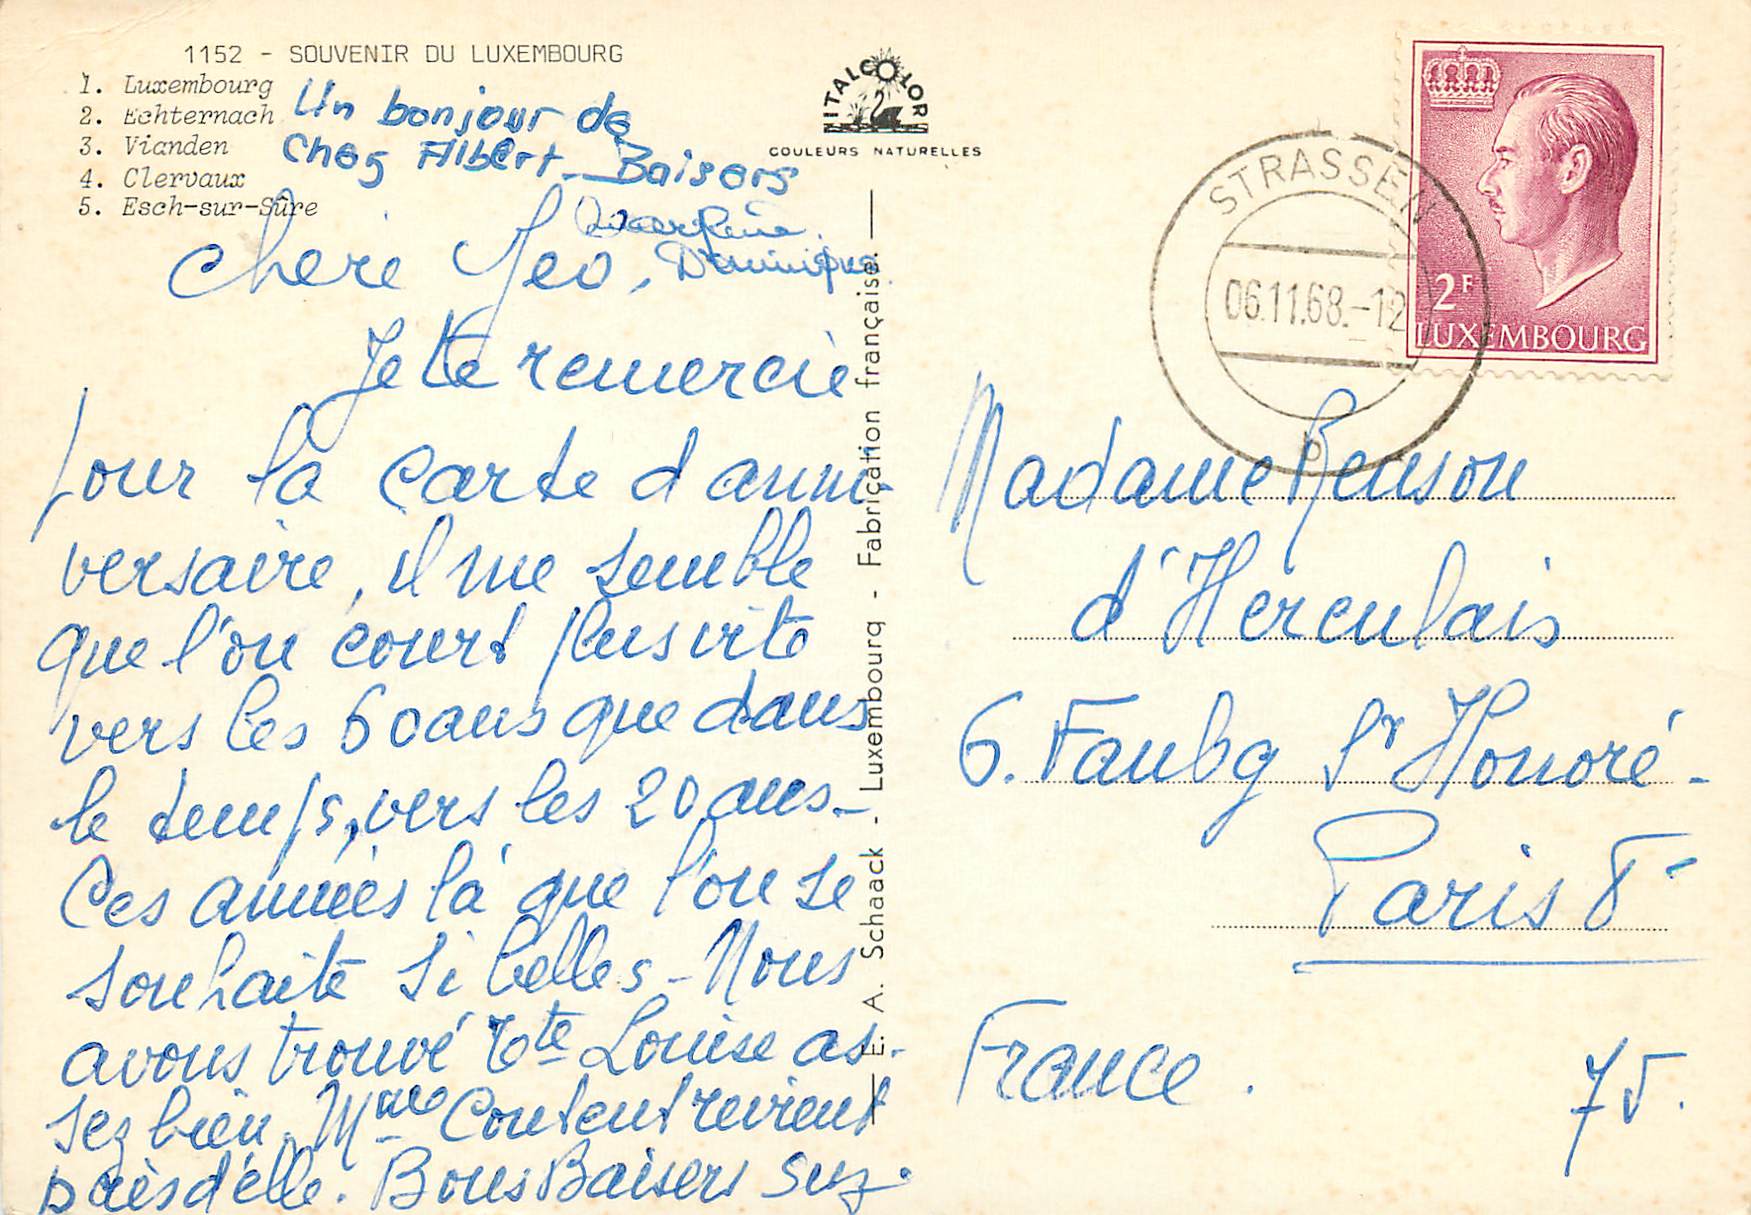 1152 - SOUVENIR DU LUXEMBOURG
1. Luxembourg
2. Echternach
3. Vianden
4. Clervaux
5. Esch-sur-Sûre
Un bonjour de
Chez Albert - Baisers
Dominique
Cherie Geo,
Je te remercie
pour la carte d'anni-
versaire, il me semble
que l'on court plus vite
vers les 60 ans que dans
le temps, vers les 20 ans -
Ces années là que l'on se
souhaite si belles - Nous
avons trouvé Tte Louise as-
sez bien. Mme Content revient
près d'elle. Bons Baisers Suz.
ITALCOLOR
COULEURS NATURELLES
E. A. Schaack - Luxembourg - Fabrication française.
STRASSEN
06.11.68.-12
b
2F
LUXEMBOURG
Madame Renson
d'Herculais
6. Faubg St Honoré -
Paris 8e
France.
75.